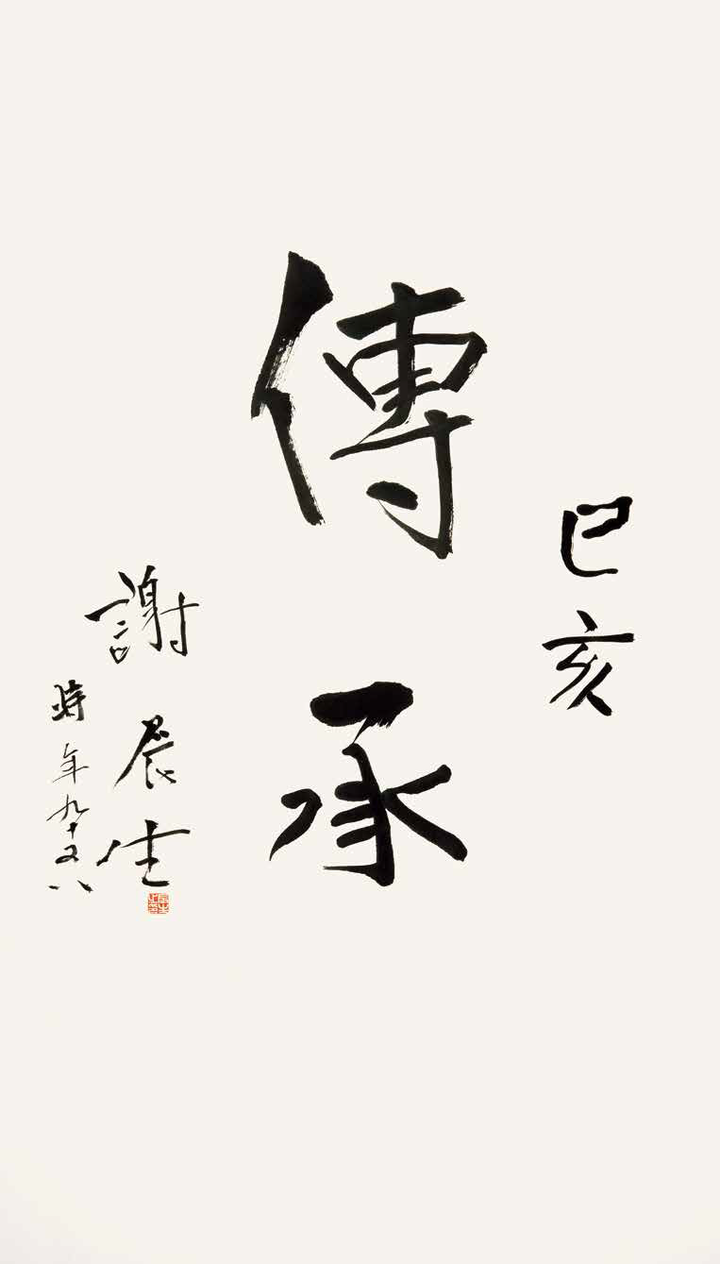 己亥
傳承
謝晨生
時年九十又八